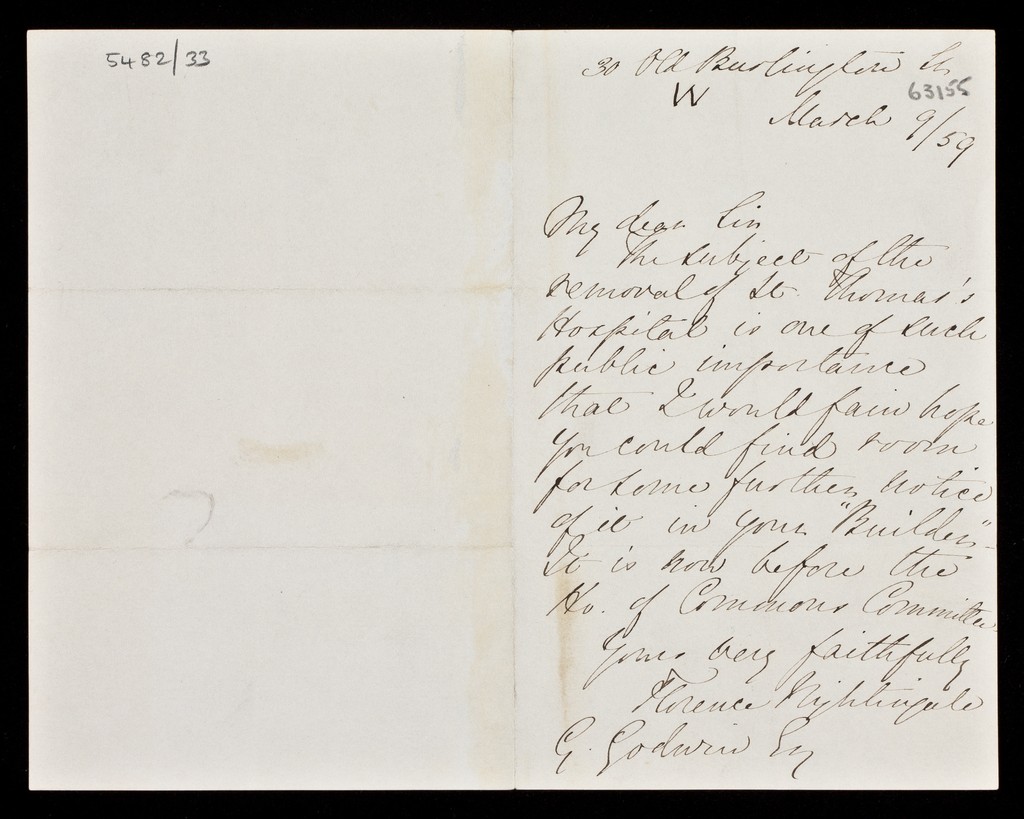 5482/33
30 Old Burlington St
63155
W
March 9/59
My dear Sir
The subject of the
removal of St. Thomas's
Hospital is one of such
public importance
that I would fain hope
you could find room
for some further notice
of it in your "Builder"-
It is now before the
Ho. of Commons Committee.
Yours very faithfully
Florence Nightingale
G. Godwin Esq